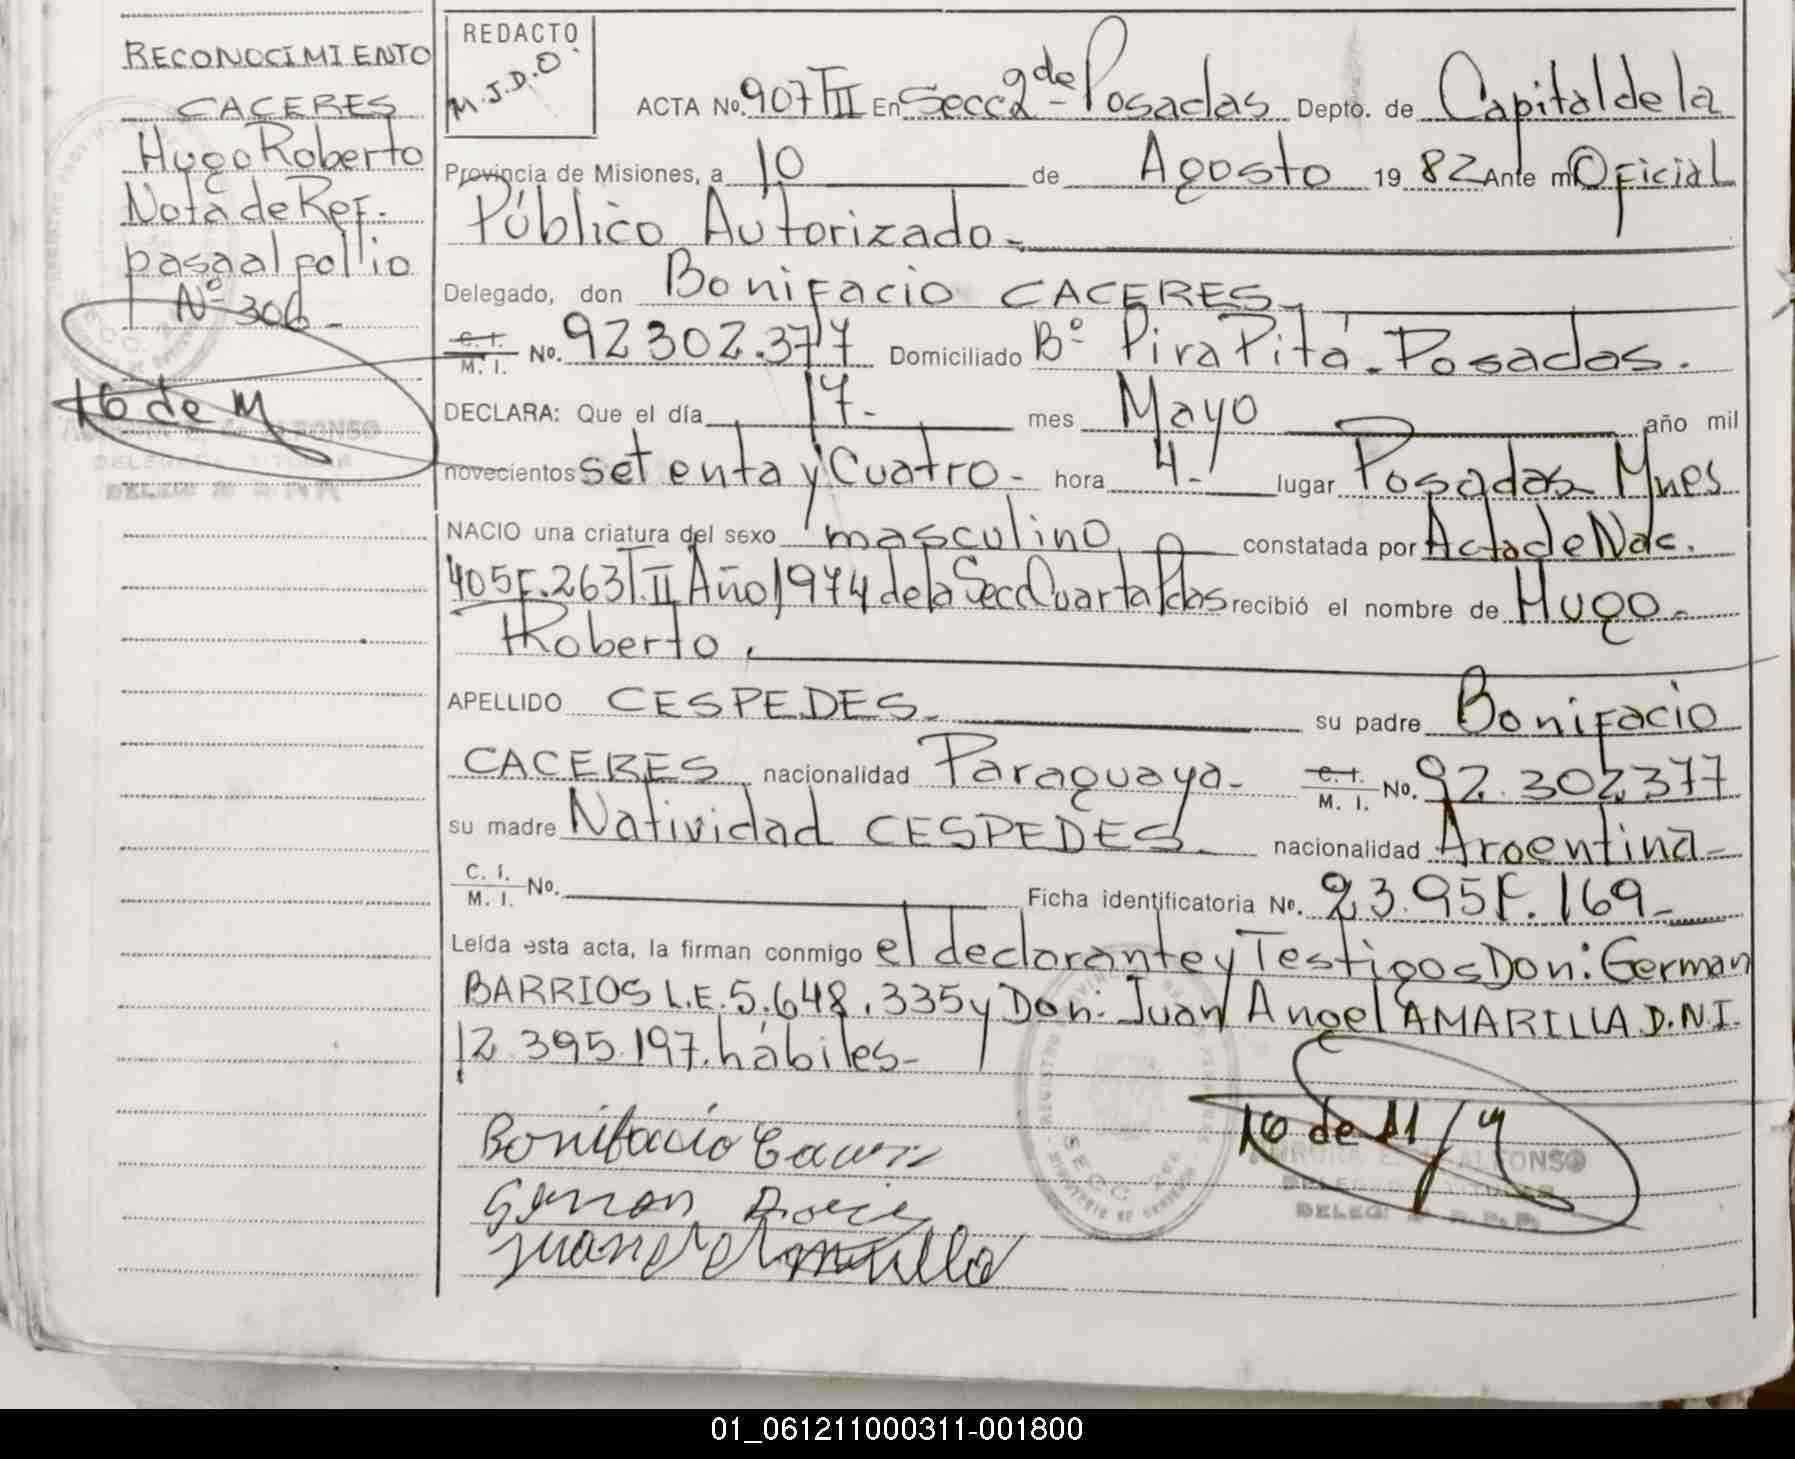 RECONOCIMIENTO
CACERES
Hugo Roberto
Nota de Ref.
pasa al follio
Nº 306-
REDACTO
M.J.D.O.
ACTA No. 907 T III En Secc 2da - Posadas Depto. de Capital de la
Provincia de Misiones, a 10 de Agosto 1982 Ante mi Oficial
Público Autorizado.-
Delegado, don Bonifacio CACERES
C. I. / M. I. No. 92302.377 Domiciliado Bº Pira Pitá. Posadas.
DECLARA: Que el día 17.- mes Mayo año mil
novecientos setenta y Cuatro- hora 4.- lugar Posadas Mnes
NACIO una criatura del sexo masculino constatada por Acta de Nac.
405 F.263 T.II Año 1974 de la Secc Cuarta Pdas recibió el nombre de Hugo-
Roberto.
APELLIDO CESPEDES- su padre Bonifacio
CACERES nacionalidad Paraguaya- C. I. / M. I. No. 92.302377
su madre Natividad CESPEDES.- nacionalidad Argentina-
C. I. / M. I. No. Ficha identificatoria No. 23.95F.169-
Leída esta acta, la firman conmigo el declarante y Testigos Don: German
BARRIOS L.E. 5.648.335 y Don: Juan Angel AMARILLA D.N.I.
12.395.197. hábiles-
Bonifacio
SECC.
DELEG.
01_061211000311-001800